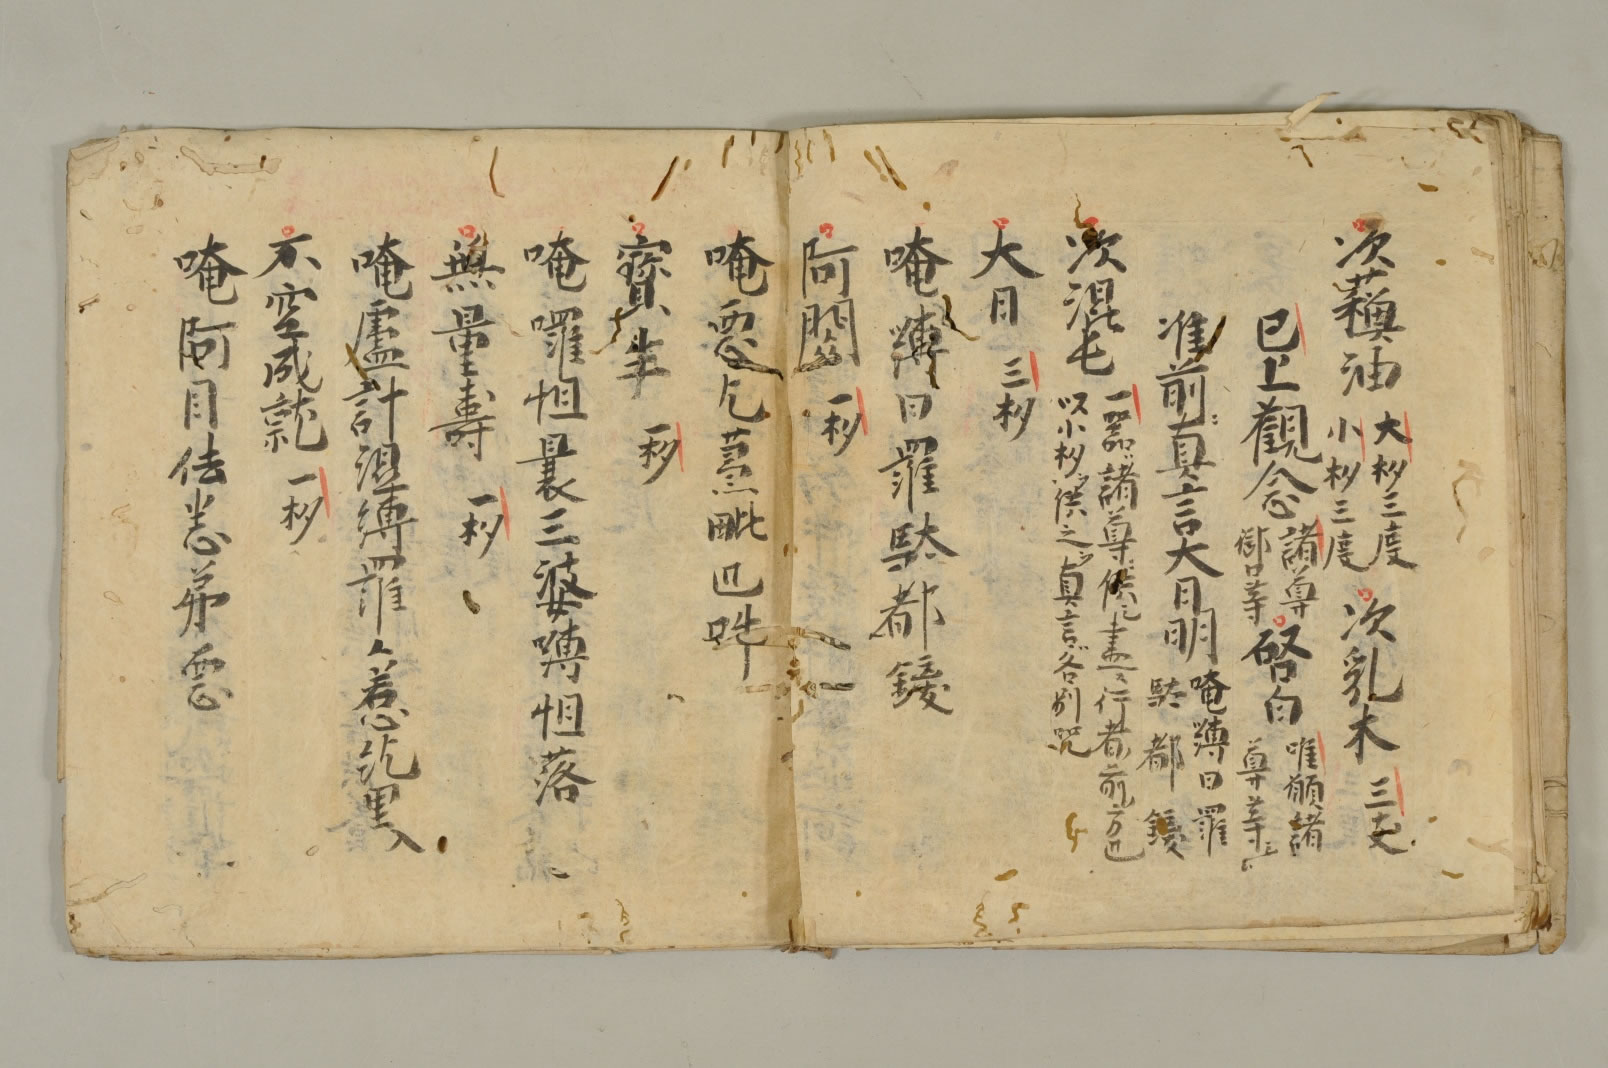 次蘓油 大杓三度 小杓三度 次乳木 三支
已上觀念 諸尊 御口等 啓白 唯願諸 尊等云云
准前真言大日明 唵縛日羅 駄都鑁
次混屯 一器諸尊供已畫行者前方也 以小杓供之真言各別咒
大日 三杓
唵嚩日羅駄都鑁
阿閦 一杓
唵惡乞蒭毗也吽
寳生 一杓
唵囉怛曩三婆嚩怛落
無量壽 一杓
唵盧計湿縛羅
不空成就 一杓
唵阿目佉悉弟惡